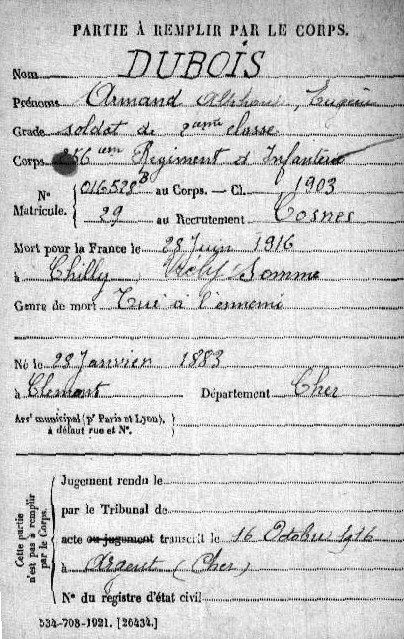 PARTIE À REMPLIR PAR LE CORPS.
Nom DUBOIS
Prénoms Armand Alphonse, Eugène
Grade soldat de 2eme classe
Corps 256 em Régiment d'Infanterie
N° Matricule. 016528 B au Corps. — Cl. 1903
29 au Recrutement Cosnes
Mort pour la France le 28 Juin 1916
à Chilly Somme
Genre de mort Tué à l'ennemi
Né le 28 Janvier 1883
à Clémont Département Cher
Arrt municipal (pr Paris et Lyon), à défaut rue et N°.
Cette partie n'est pas à remplir par le Corps.
Jugement rendu le
par le Tribunal de
acte ou jugement transcrit le 16 Octobre 1916
à Argent (Cher)
N° du registre d'état civil
534-708-1921. [26434.]